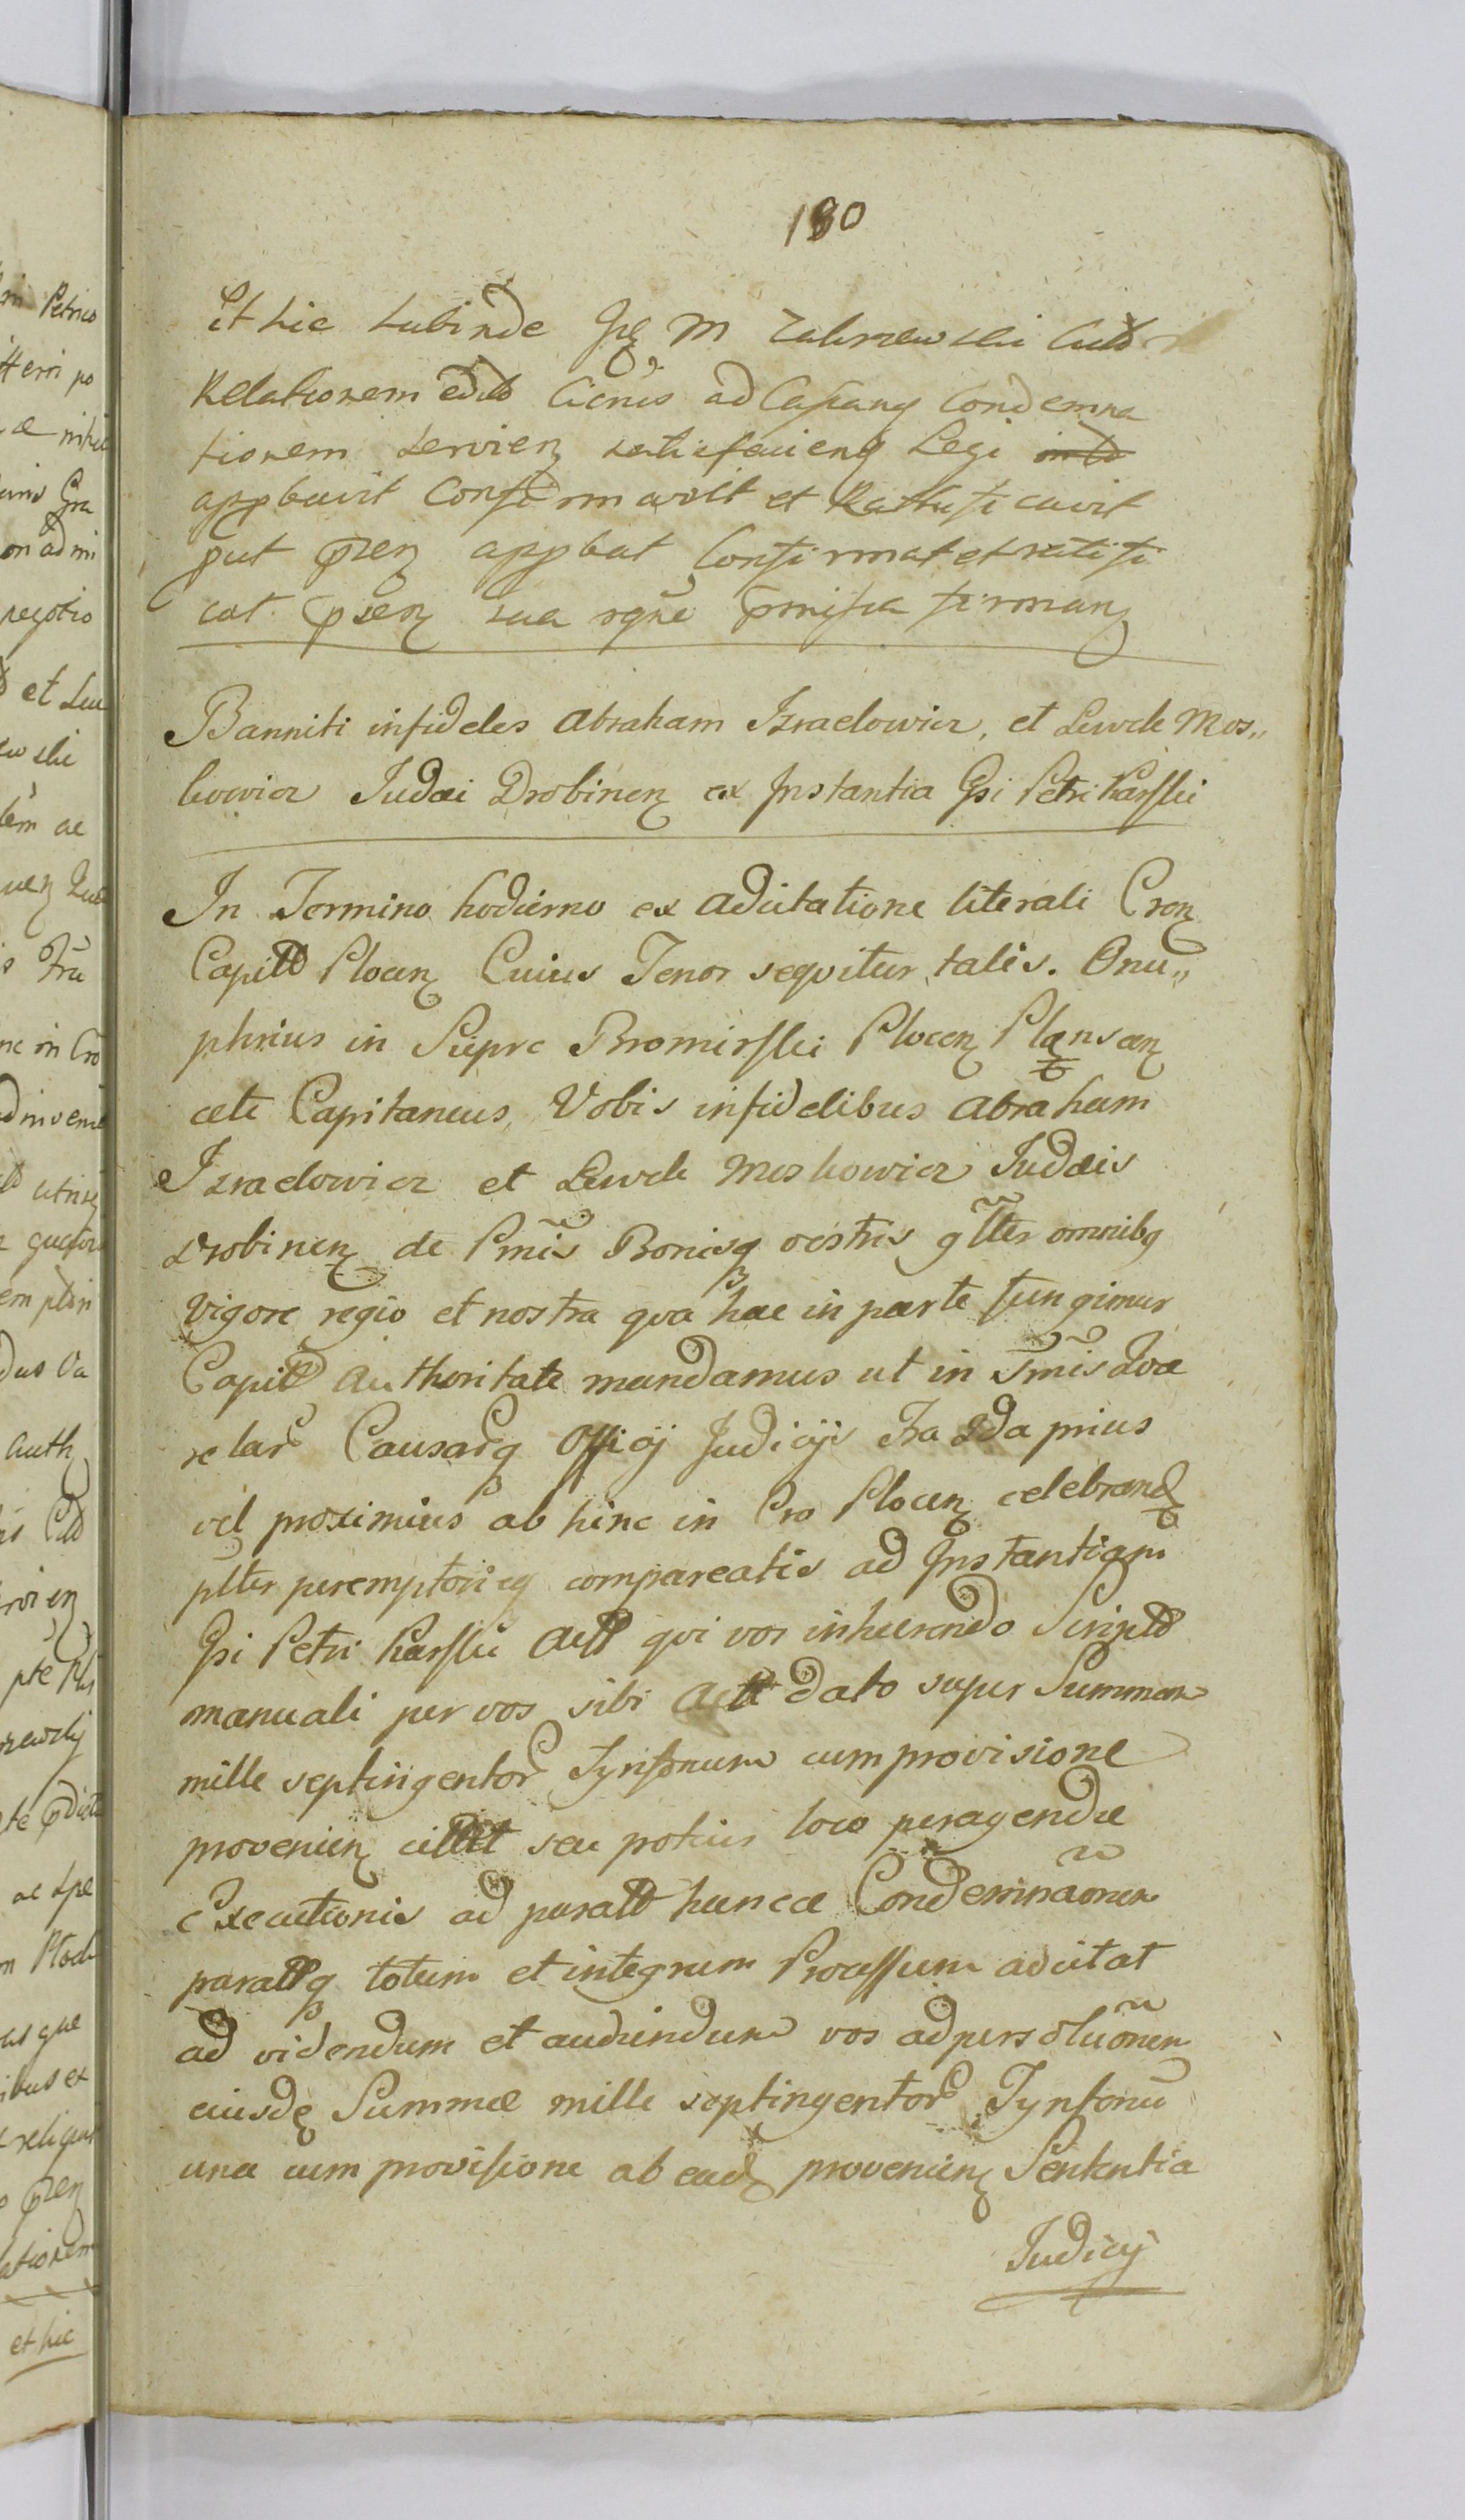 180
et hic subinde M Zaleszewski
Relationem ad Condemna
tionem servien satisfacieng Legi
appbavit Confirmavit et Rattificavit
put pñen appbat Confirmat et ratifi
cat pñen sua pmissa firmanz
Banniti infideles Abraham Izraelowicz, et Lewek Mos„
kowicz Judæi Drobinenz ex Instantia Gsi Petri Karski
In Termino hodierno ex adcitatione literali Cronz
Capitt Plocenz Cuius Tenor sequitur talis. Onu„
phrius in Siepre Bromirski Plocenz
cete Capitaneus, Vobis infidelibus Abraham
Izraelowicz et Lewek Moskowicz Judæis
Drobinenz de Pmis Bonisq vestris gtter omnibq
vigore regio et nostra qva hac in parte fungimur
Capit Authoritate mandamus ut in Tmis
relar Causarq Officÿ Judicÿs prius
vel proximius ab hinc in Cro Plocenz celebrand
ptter peremptorieq compareatis ad Instantiam
Gsi Petri Karski Actt qvi vos inhærendo Scripto
manuali per vos sibi Actt dato super Summam
mille septingentor Tynfonum cum provisione
provenienz citatt seu potius loco peragendæ
Executionis ad paratt huncce Condemnaonem
parattq totum et integrum Processum adcitat
ad videndum et audiendum vos ad persoluõnem
eiusdę Summæ mille septingentor Tynfonũ
una cum provisione ab ead provenienz Sententia
Judicÿ